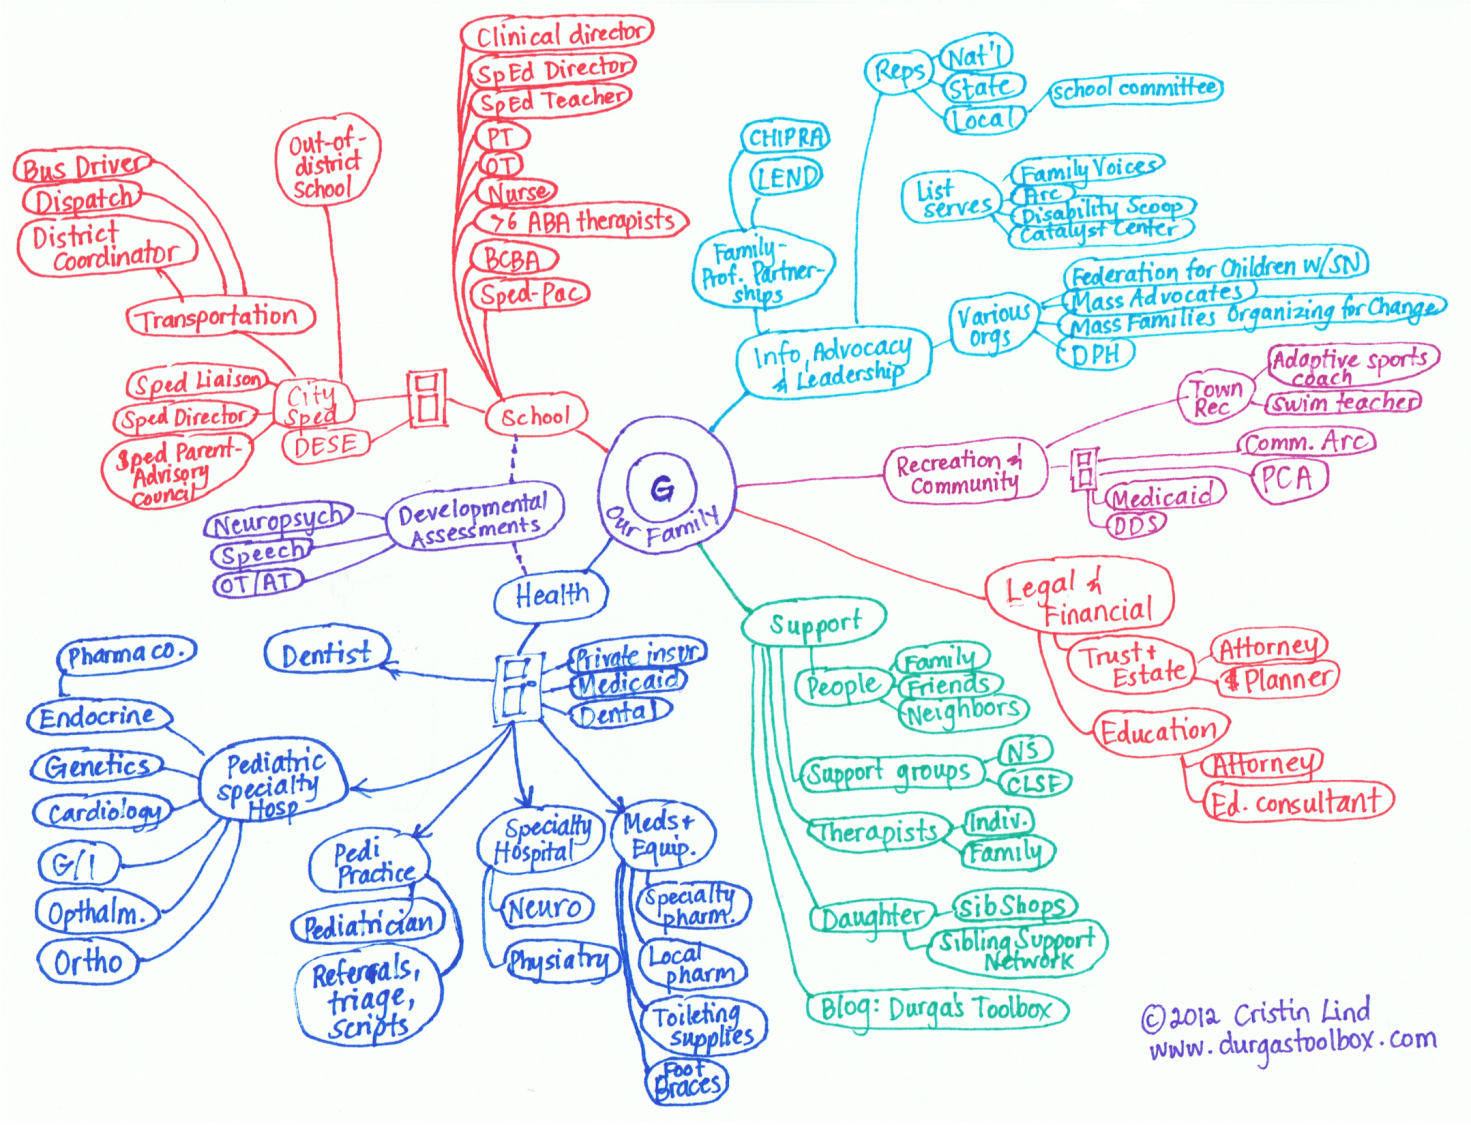 Clinical director
SpEd Director
SpEd Teacher
PT
OT
Nurse
>6 ABA therapists
BCBA
Sped-Pac
School
Out-of-
district
School
Bus Driver
Dispatch
District
Coordinator
Transportation
Sped Liaison
Sped Director
Sped Parent-
Advisory
Council
City
Sped
DESE
Reps
Nat'l
State
Local
School committee
CHIPRA
LEND
Family-
Prof. Partner-
ships
List
serves
Family Voices
Arc
Disability Scoop
Catalyst Center
Various
orgs
Federation for Children w/SN
Mass Advocates
Mass Families Organizing for Change
DPH
Info, Advocacy
& Leadership
Town
Rec
Adaptive sports
coach
Swim teacher
Recreation &
Community
Comm. Arc
PCA
Medicaid
DDS
G
Our Family
Developmental
Assessments
Neuropsych
Speech
OT/AT
Health
Dentist
Private insur.
Medicaid
Dental
Pharma co.
Endocrine
Genetics
Cardiology
G/I
Opthalm.
Ortho
Pediatric
specialty
Hosp
Pedi
Practice
Pediatrician
Referrals,
triage,
scripts
Specialty
Hospital
Neuro
Physiatry
Meds +
Equip.
Specialty
pharm.
Local
pharm
Toileting
supplies
Foot
Braces
Support
People
Family
Friends
Neighbors
Support groups
NS
CLSF
Therapists
Indiv.
Family
Daughter
SibShops
Sibling Support
Network
Blog: Durga's Toolbox
Legal &
Financial
Trust +
Estate
Attorney
$ Planner
Education
Attorney
Ed. consultant
©2012 Cristin Lind
www.durgastoolbox.com